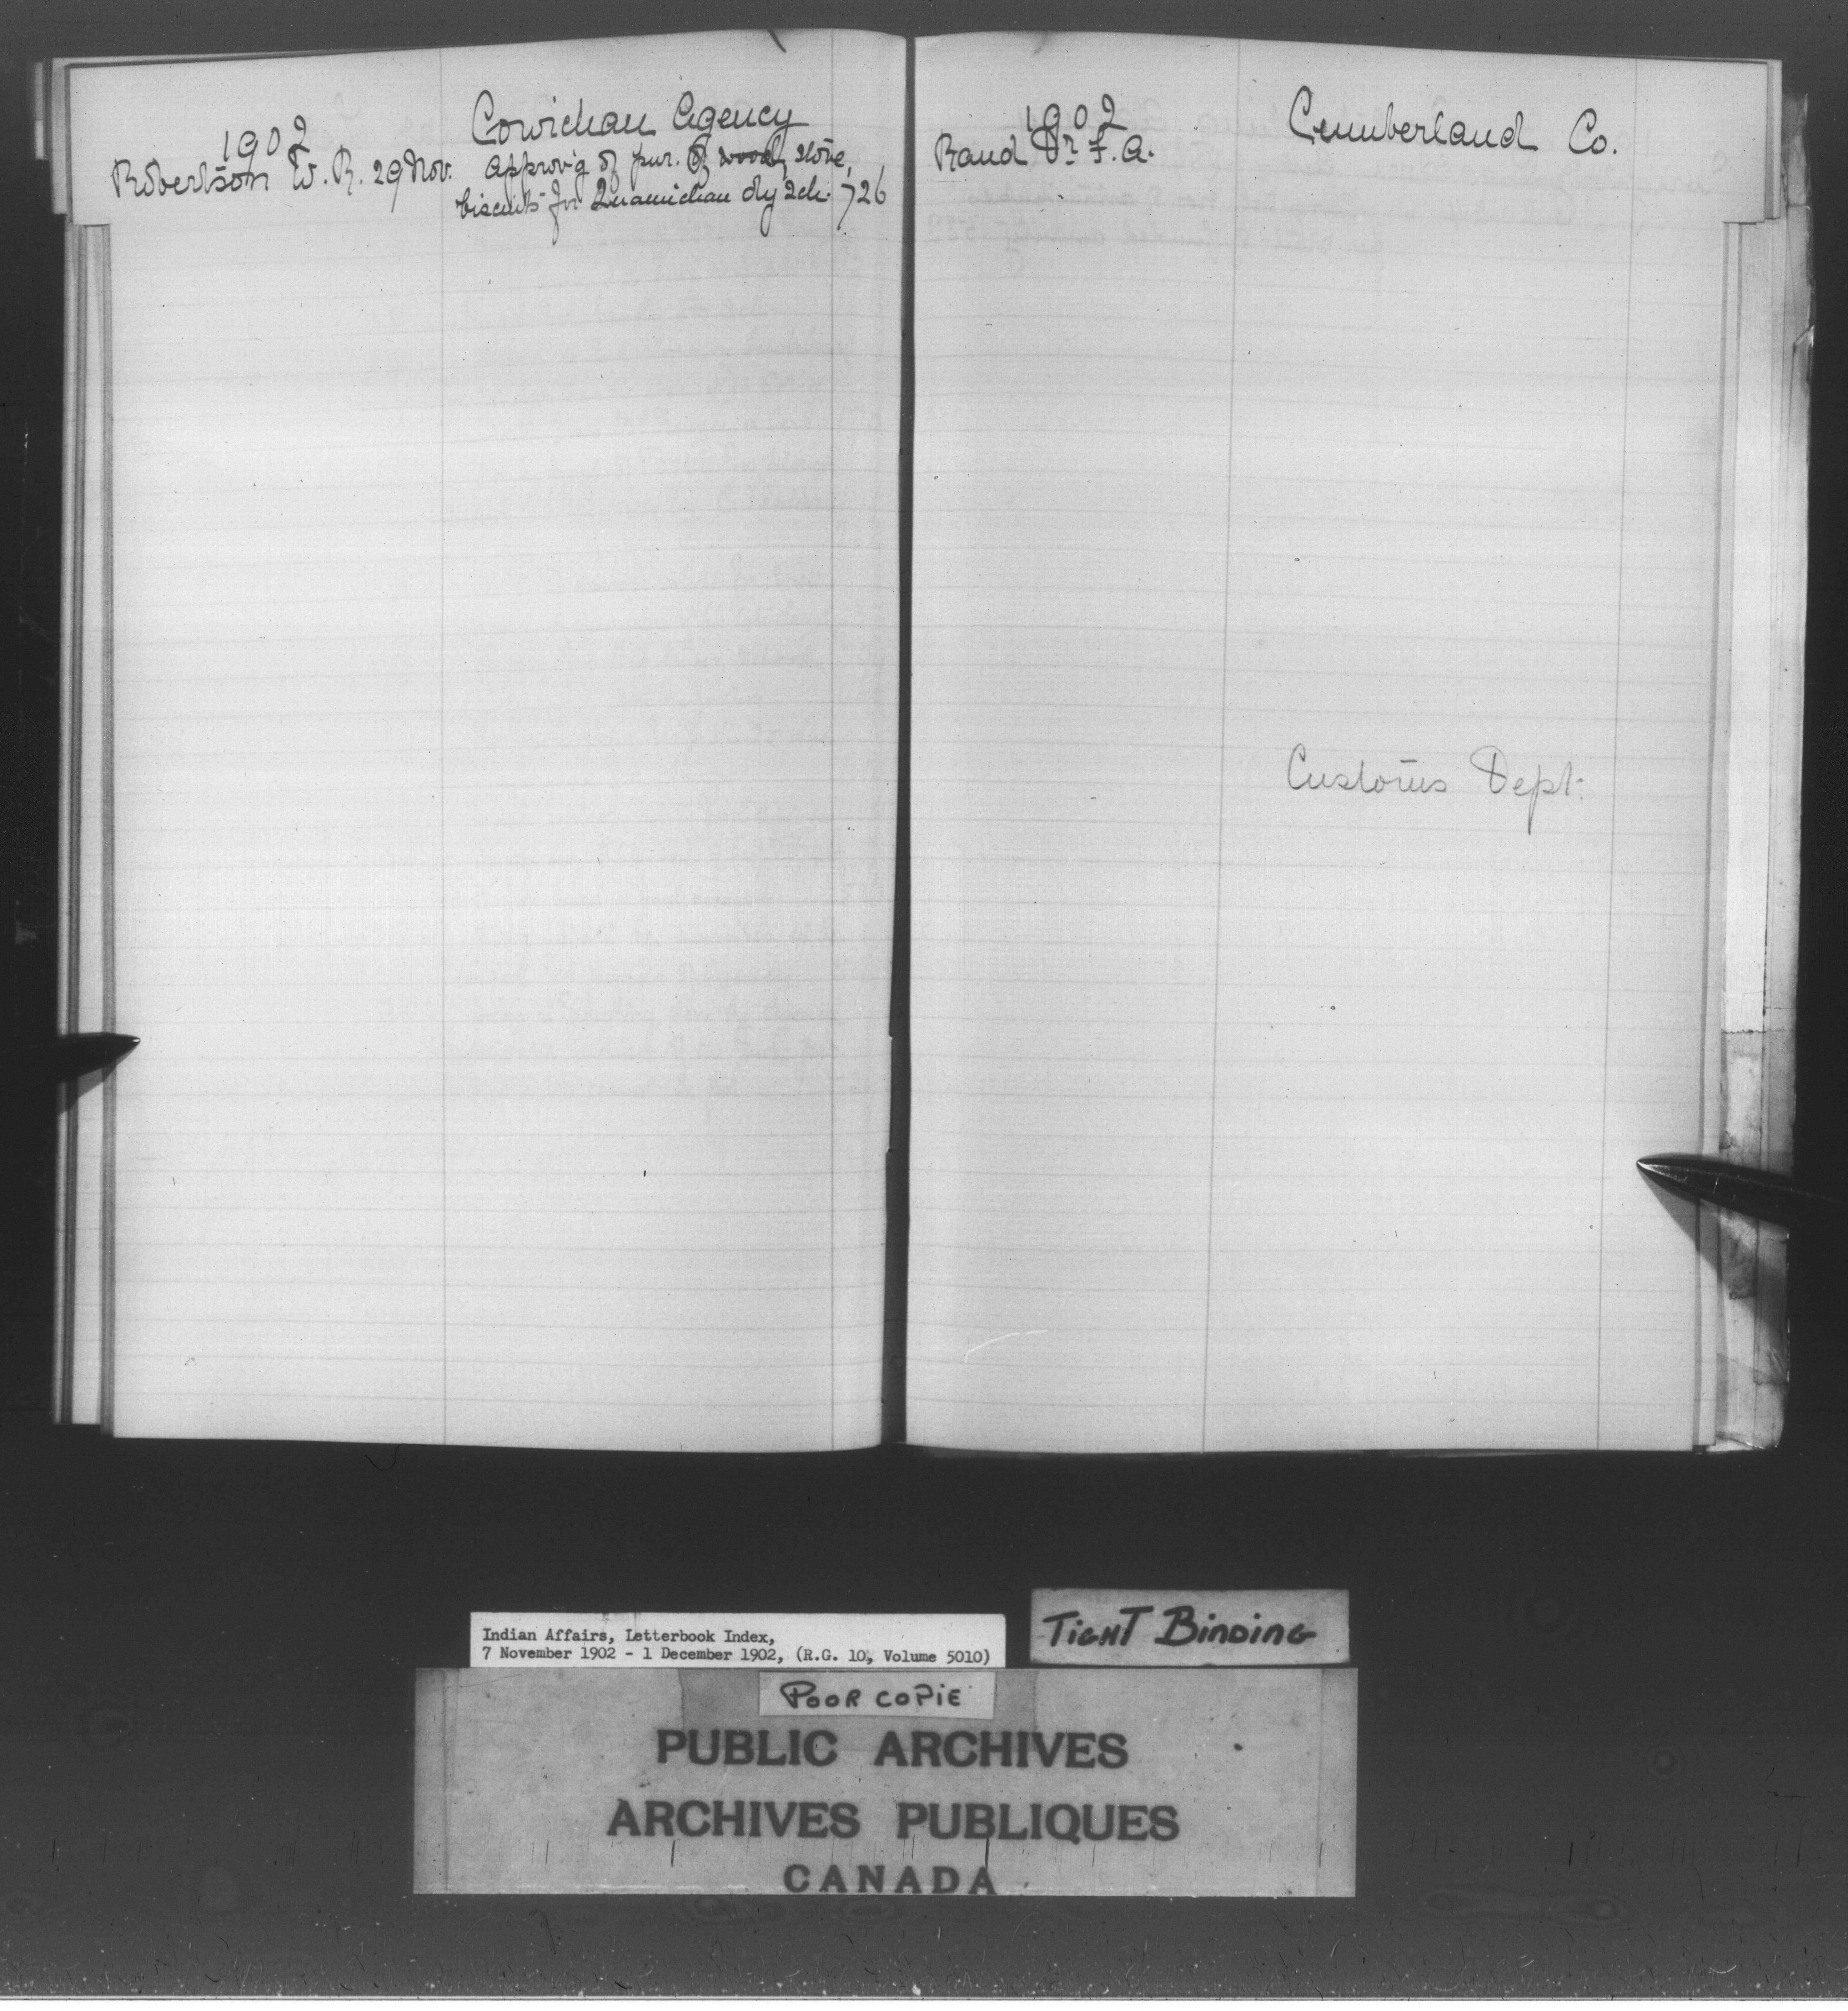 Cowichan Agency
1902
Robertson W. R. 29 Nov. approv'g of pur. of wood, stove,
biscuits for Quamichan dy sch. 726
1902
Cumberland Co.
Rand Dr F. A.
Customs Dept.
Indian Affairs, Letterbook Index,
7 November 1902 - 1 December 1902, (R.G. 10, Volume 5010)
TIGHT BINDING
POOR COPIE
PUBLIC ARCHIVES
ARCHIVES PUBLIQUES
CANADA